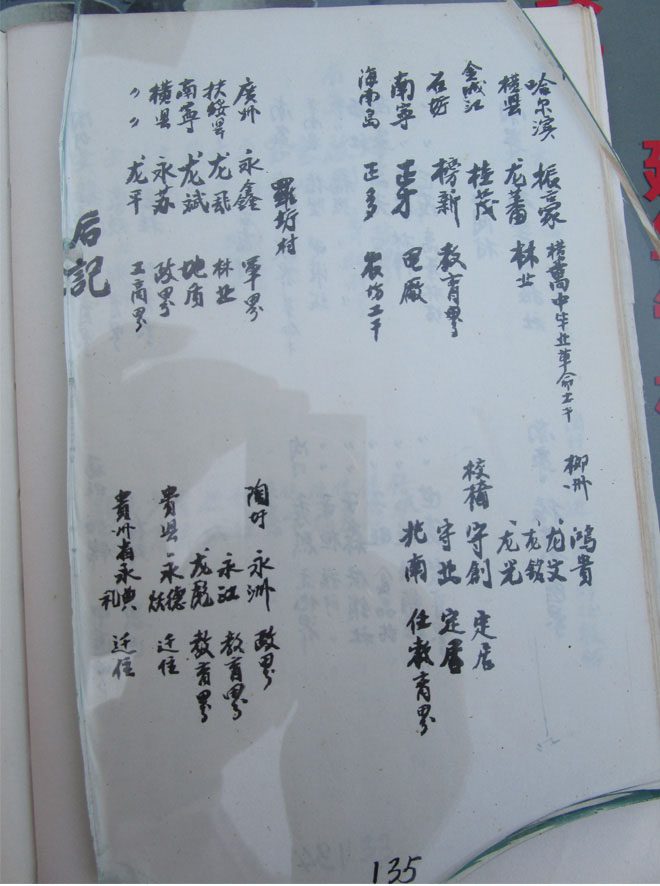 哈尔滨 振豪 横高中毕业革命工干
横县 龙蕃 林业
金城江 桂茂
石圩 榜新 教育界
南宁 正才 电厰
海南岛 正多 农坊工干
柳州 鸿貴
龙文
龙銘
龙光
校椅 守創 定居
守业 定居
兆南 任教育界
羅圩村
廣州 永鑫 軍界
扶绥县 龙飛 林业
南寧 龙斌 地质
横县 永苏 政界
〃〃 龙平 工商界
陶圩 永洲 政界
永江 教育界
龙彪 教育界
貴县 永德 迁住
貴州省 永典 礼 迁住
后記
135